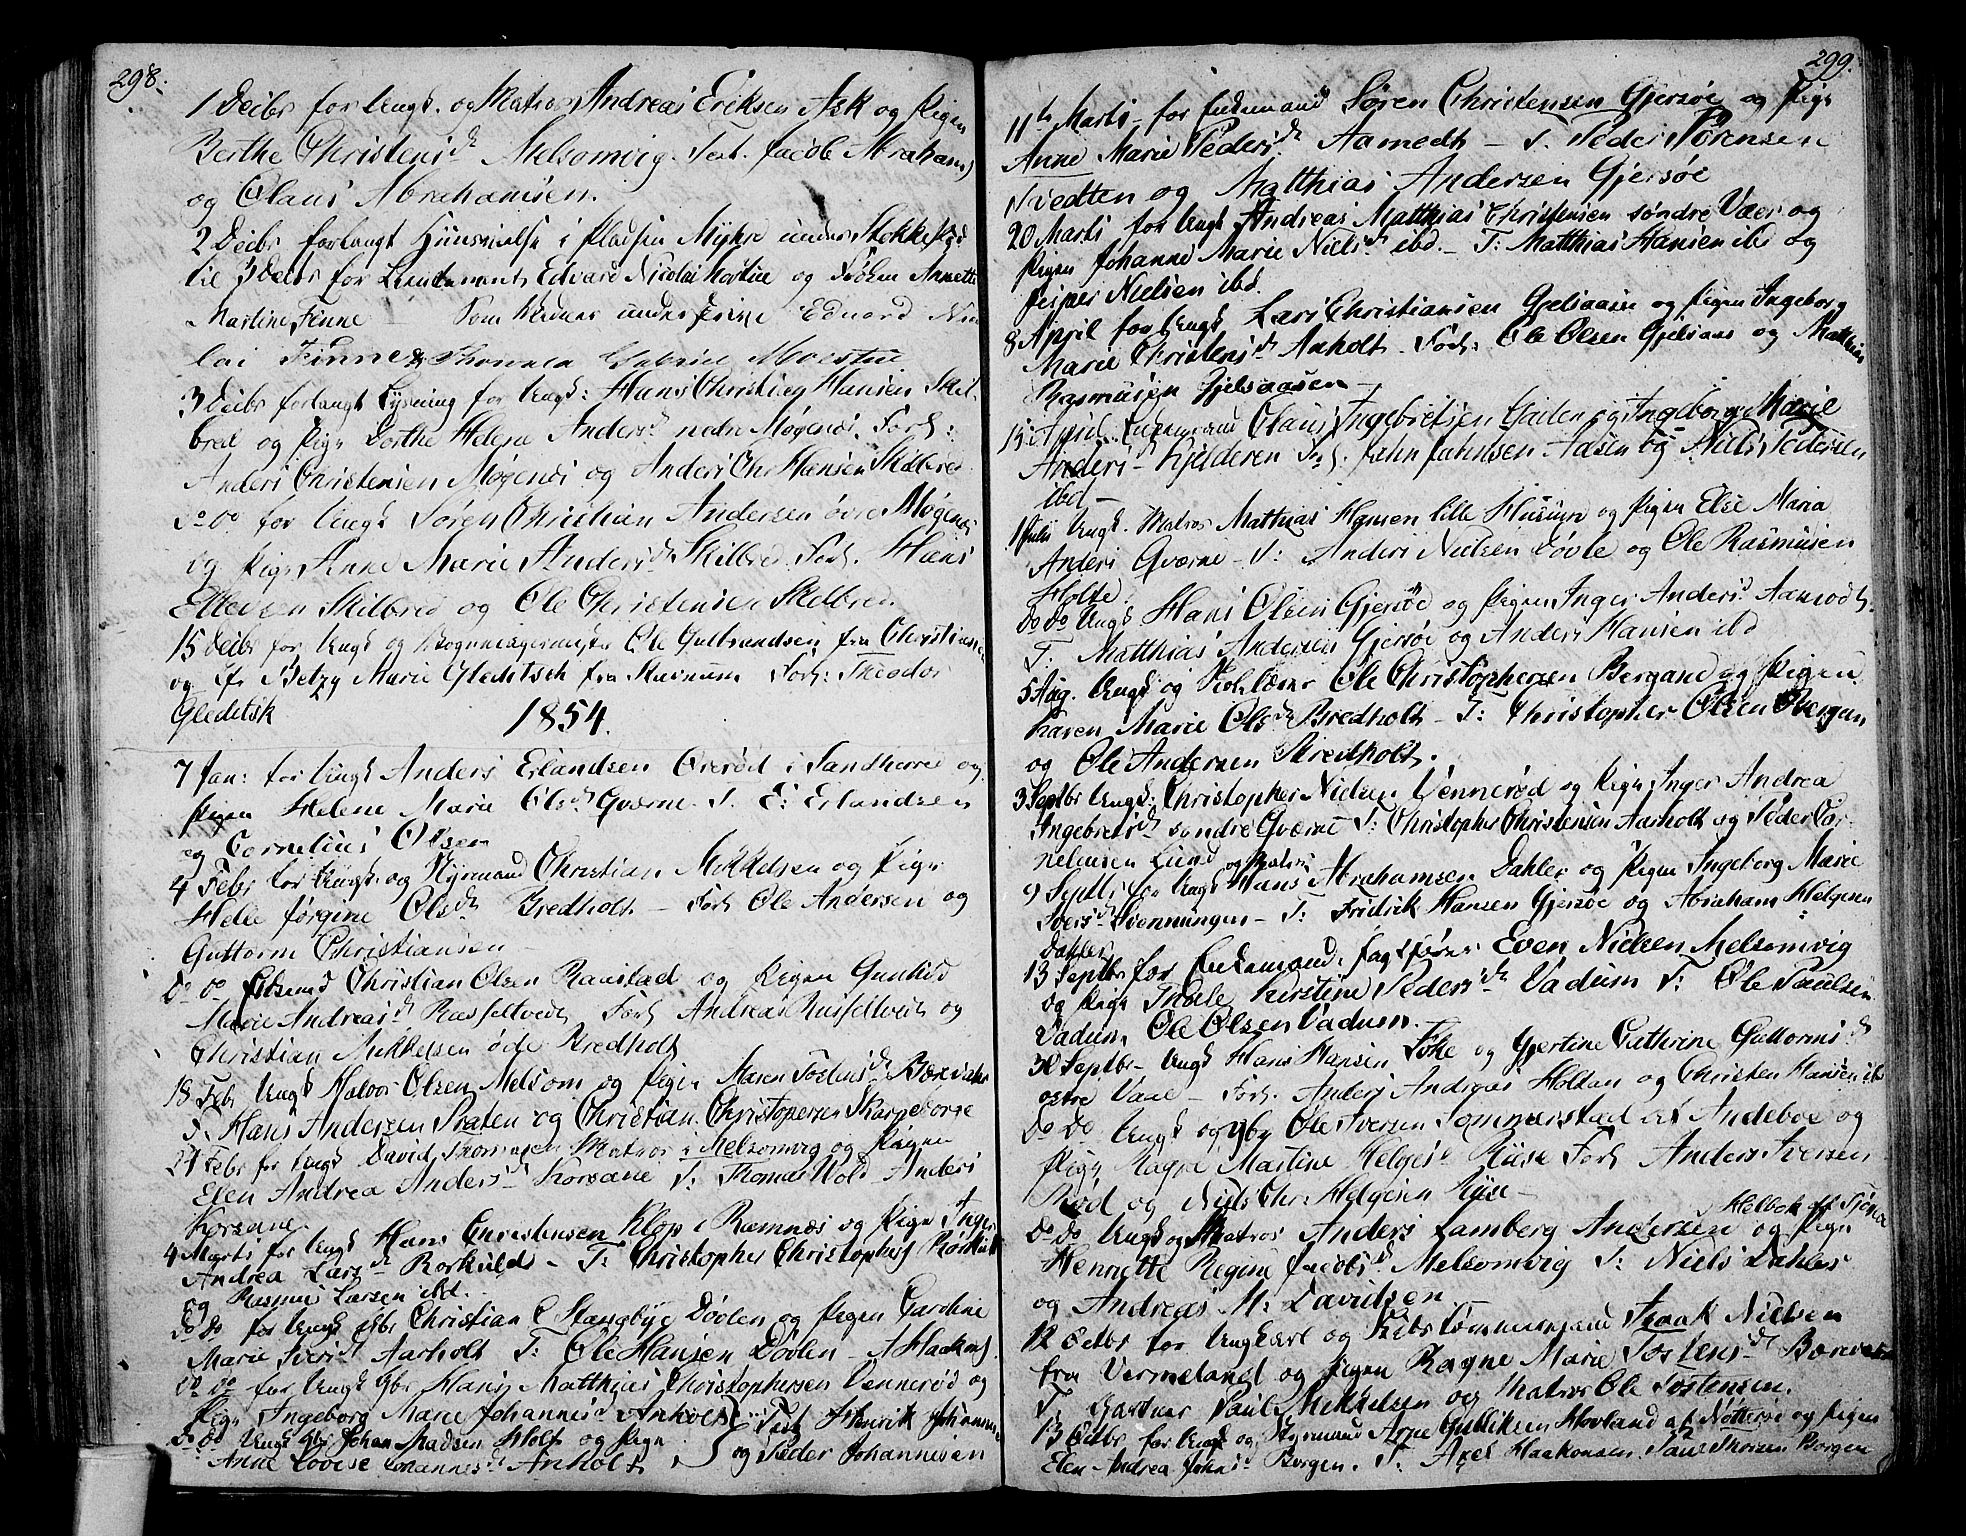 298.
1 Decbr for Ungk. og Matros Andreas Eriksen Ask og Pigen
Berthe Christensd Melsomvig. Test. Jacob Abrahams
og Olaus Abrahamsen.
2 Decbr forlangt Huusvielse i Pladsen Myhre under Stokke
til 3 Decbr for Lieutenant Edvard Nicolai og Frøken Annette
Martine Finne — Som Kaution underskrive Edvard Nico
lai Finne & Thomas Gabriel Moestue
3 Decbr forlangt Lysning for Ungk: Hans Christian Hansen Skil
bred og Pige Dorthe Helene Andersd nedre Møgenøs. Forl:
Anders Christensen Møgenøs og Anders Chr Hansen Skilbred
do do for Ungk Søren Christian Andersen øvre Møgenøs
og Pige Anne Marie Andersd Skilbred. Forl. Hans
Ellevsen Skilbred og Ole Christensen Skilbred.
15 Decbr for Ungk og Ole Gulbrandsen fra Christiania
og Pr Betzy Marie Gleditsch fra Forl: Theodor
Gleditsk
1854.
7 Jan: for Ungk Anders Erlandsen Orerød i Sandherred og
Pigen Helene Marie Olsd Gværne. T. E: Erlandsen
og Cornelius Olsen
4 Febr for Ungk. og Styrmand Christian Mikkelsen og Pige
Helle Jørgine Olsd Bredholt — Forl Ole Andersen og
Guttorm Christiansen —
do do Christian Olsen Ranstad og Pigen Gunhild
Marie Andreasd Rasseltvedt Forl Andreas Russeltvedt og
Christian Mikkelsen øde Bredholt
18 Febr Ungk Halvor Olsen Melsom og Pige Maren Tostensd
T. Hans Andersen Praten og Christian Christophersen Skarpeborge
21 Febr for Ungk David Thomasen Matros i Melsomvig og Pigen
Elen Andrea Andersd Korsane T: Thomas Wold Anders
Korsane.
4 Marts for Ungk Hans Christensen Klop i Ramnæs og Pige Inger
Andrea Larsd Rorkuld — T: Christopher Christophers Rørkuld
og Rasmus Larsen ibd.
do do for Ungk gbr Christian C Stangbye Døvlen og Pigen Cardine
Marie Iversd Aarholt T: Ole Hansen Døvlen — A Haakons
do do for Ungk Gbr Hans Matthias Christophersen Vennerød og
Pige Ingeborg Marie Johannesd Anholt } Test Henrik Johannesen
do do Ungk gbr Johan Madsen Holt og Pige og Peder Johannesen
Anne Lovise Johannesd Anholt
299.
11te Marts — for Enkemand Søren Christensen Gjersøe og Pige
Anne Marie Pedersd Aamedt — T. Peder Sørensen
Tvedten og Matthias Andersen Gjersøe
20 Marts for Ungk Andreas Matthias Christensen søndre Væer og
Pigen Johanne Marie Nielsd ibd. — T: Matthias Hansen ibd og
Jesper Nielsen ibd.
8 April for Ungk Lars Christiansen Gjelsaasen og Pigen Ingeborg
Marie Christensd Anholt — Forl: Ole Olsen Gjelsaas og Mathias
Rasmusen Gjelsaasen —
15 April Enkemand Olaus Ingebretsen og Ingeborg Marie
Andersd — Kjelderen Forl. John Johnsen Aasen og Niels Pedersen
ibd —
1 Juli Ungk. Matros Matthias Hansen lille Huusum og Pigen Else Maria
Anders Gværne — T: Anders Nielsen Døvle og Ole Rasmusen
Holte.
do do Ungk Hans Olsen Gjersøe og Pigen Inger Andersd Aamodt.
T. Matthias Andersen Gjersøe og Anders Hansen ibd
5 Aug. Ungk og Ole Christophersen Bergan og Pigen
Karen Marie Olsd Bredholt — T: Christopher Olsen Bergan
og Ole Andersen Bredholt.
3 Septbr Ungk: Christopher Nielsen Vennerød og Pige Inger Andrea
Ingebretsd syndre Gværne T: Christopher Christensen Aarholt og Peder Cor
neliusen Lund
9 Septbr for Ungk og Matros Hans Abrahamsen Dahler og Pigen Ingeborg Marie
Iversd Svenningen — T: Fridrik Hansen Gjersøe og Abraham Helgesen
Dahler
13 Septbr for Enkemand, Even Nielsen Melsomvig
og Pige Thale Kirstine Pedersd Vadum T: Ole Paulsen
Vadum, Ole Olsen Vadum.
30 Septbr — Ungk Hans Hansen Føke og Gjertine Cathrine Guttormsd
østre — Forl. Anders Andreas Holtan og Christen Hansen ibd
do do Ungk og Gbr Ole Iversen Sommerstad af Andeboe og
Pige Ragne Martine Helgesd Riise Forl Anders Iversen
Rød og Niels Chr: Helgesen Riise —
Helbok af Tjømø
do do Ungk og Matros Anders Lamberg Andersen og Pige
Henriette Regine Jacobsd Melsomvig T: Niels Dahler
og Andreas M: Davidsen
12 Octbr for Ungkarl og Skibstømmermand Isaak Nielsen
fra Vermeland og Pigen Ragne Marie Tostensd
T. Gartner Paul Mikkelsen og Matros Ole Tostensen.
13 Octbr for Ungk og Styrmand Arne Gulliksen Hovland af Nøtterøe og Pigen
Elen Andrea Johnsd Borgen. T: Axel Haakonsen. Paul Thorsen Borgen